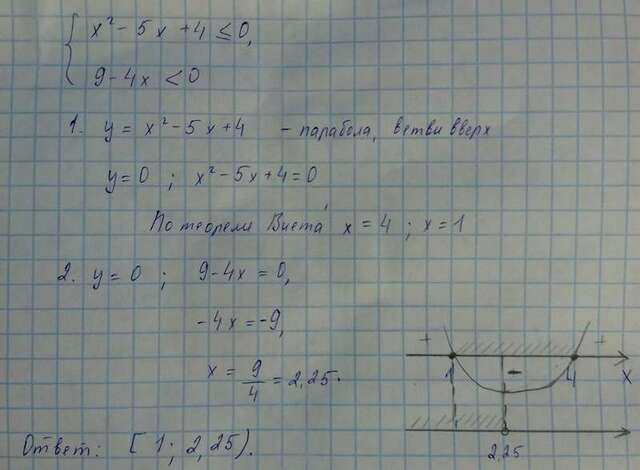 x² - 5x + 4 ≤ 0,
9 - 4x < 0
1. y = x² - 5x + 4 - парабола, ветви вверх
y = 0 ; x² - 5x + 4 = 0
По теореме Виета x = 4 ; x = 1
2. y = 0 ; 9 - 4x = 0,
- 4x = -9,
x = 9/4 = 2,25.
+ - +
1 4 x
2,25
Ответ: [ 1 ; 2,25).